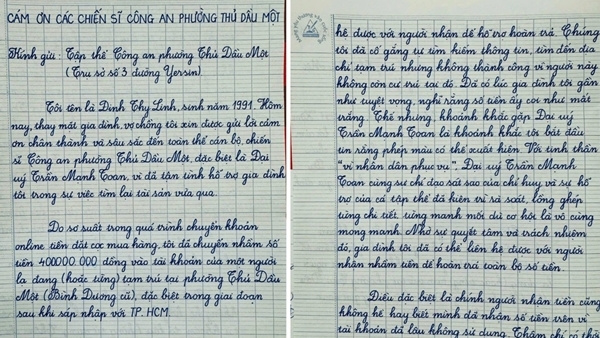 CÁM ƠN CÁC CHIẾN SĨ CÔNG AN PHƯỜNG THỦ DẦU MỘT
Kính gửi: Tập thể Công an phường Thủ Dầu Một
(Trụ sở số 3 đường Yersin)
Tôi tên là Đinh Thy Linh, sinh năm 1991. Hôm
nay, thay mặt gia đình, vợ chồng tôi xin được gửi lời cám
ơn chân thành và sâu sắc đến toàn thể cán bộ, chiến
sĩ Công an phường Thủ Dầu Một, đặc biệt là Đại
uý Trần Mạnh Toan, vì đã tận tình hỗ trợ gia đình
tôi trong sự việc tìm lại tài sản vừa qua.
Do sơ suất trong quá trình chuyển khoản
online tiền đặt cọc mua hàng, tôi đã chuyển nhầm số
tiền 400.000.000 đồng vào tài khoản của một người
lạ đang (hoặc từng) tạm trú tại phường Thủ Dầu
Một (Bình Dương cũ), đặc biệt trong giai đoạn
sau khi sáp nhập với TP. HCM.
hệ được với người nhận để hỗ trợ hoàn trả. Chúng
tôi đã cố gắng tự tìm kiếm thông tin, tìm đến địa
chỉ tạm trú nhưng không thành công vì người này
không còn cư trú tại đó. Đã có lúc gia đình tôi gần
như tuyệt vọng, nghĩ rằng số tiền ấy coi như mất
trắng. Thế nhưng, khoảnh khắc gặp Đại uý
Trần Mạnh Toan là khoảnh khắc tôi bắt đầu
tin rằng phép màu có thể xuất hiện. Với tinh thần
"vì nhân dân phục vụ", Đại uý Trần Mạnh
Toan cùng sự chỉ đạo sát sao của chỉ huy và sự hỗ
trợ của cả tập thể đã kiên trì rà soát, lồng ghép
từng chi tiết, từng manh mối dù cơ hội là vô cùng
mong manh. Nhờ sự quyết tâm và trách nhiệm
đó, gia đình tôi đã có thể liên hệ được với người
nhận nhầm tiền để hoàn trả toàn bộ số tiền.
Điều đặc biệt là chính người nhận tiền cũng
không hề hay biết mình đã nhận số tiền trên vì
tài khoản đã lâu không sử dụng. Thậm chí có thời